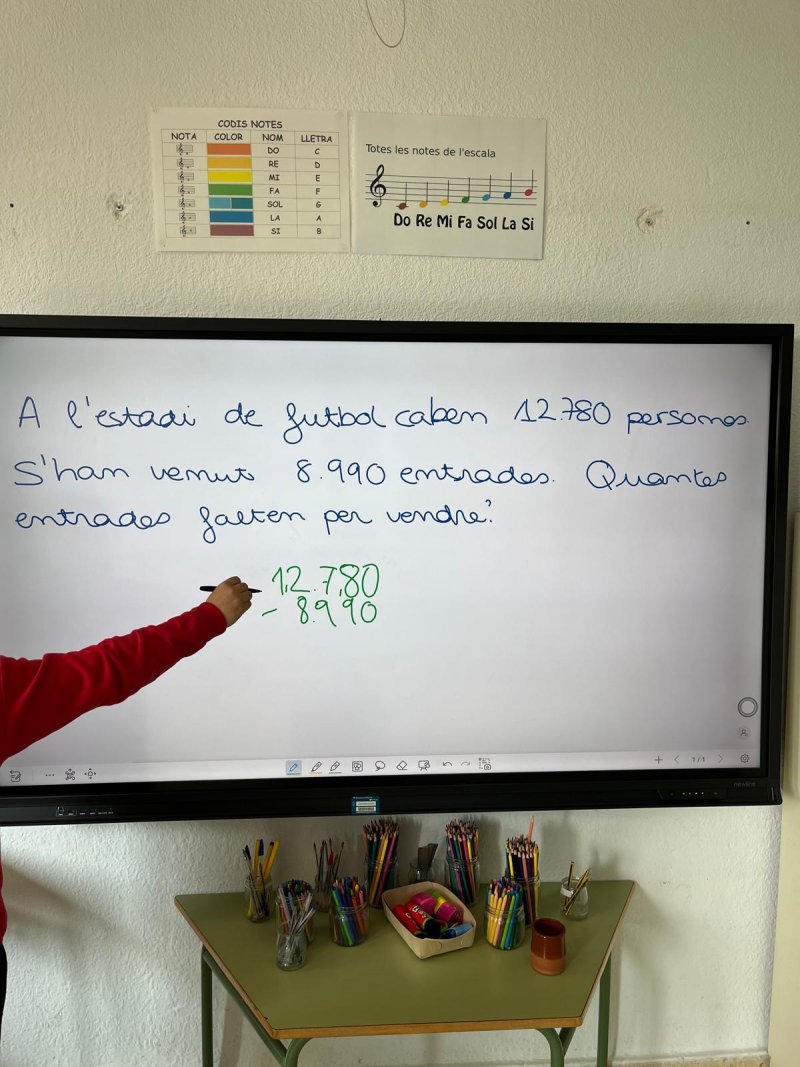 CODIS NOTES
NOTA COLOR NOM LLETRA
DO C
RE D
MI E
FA F
SOL G
LA A
SI B
Totes les notes de l'escala
Do Re Mi Fa Sol La Si
A l'estadi de futbol caben 12.780 persones.
S'han venut 8.990 entrades. Quantes
entrades falten per vendre?
12.780
- 8.990
1/1
newline